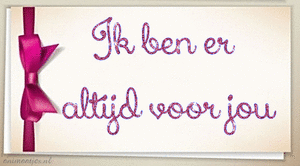 Ik ben er
altijd voor jou